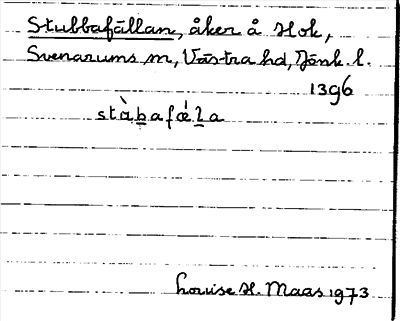 Stubbafällan, åker å Hok,
Svenarums sn, Västra hd, Jönk. l.
1396
stàb̲afǽl̲a
Louise H. Maas 1973